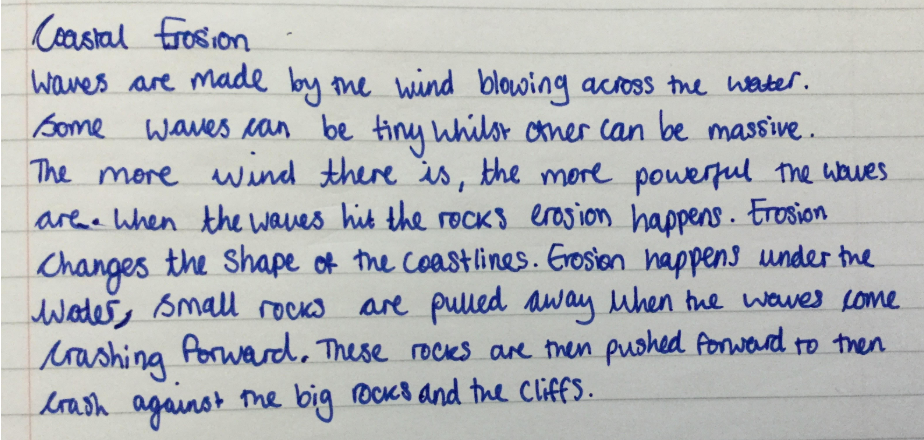 Coastal Erosion
Waves are made by the wind blowing across the water.
Some waves can be tiny whilst other can be massive.
The more wind there is, the more powerful the waves
are. When the waves hit the rocks erosion happens. Erosion
Changes the Shape of the Coastlines. Erosion happens under the
Water, Small rocks are pulled away when the waves come
crashing forward. These rocks are then pushed forward to then
crash against the big rocks and the Cliffs.